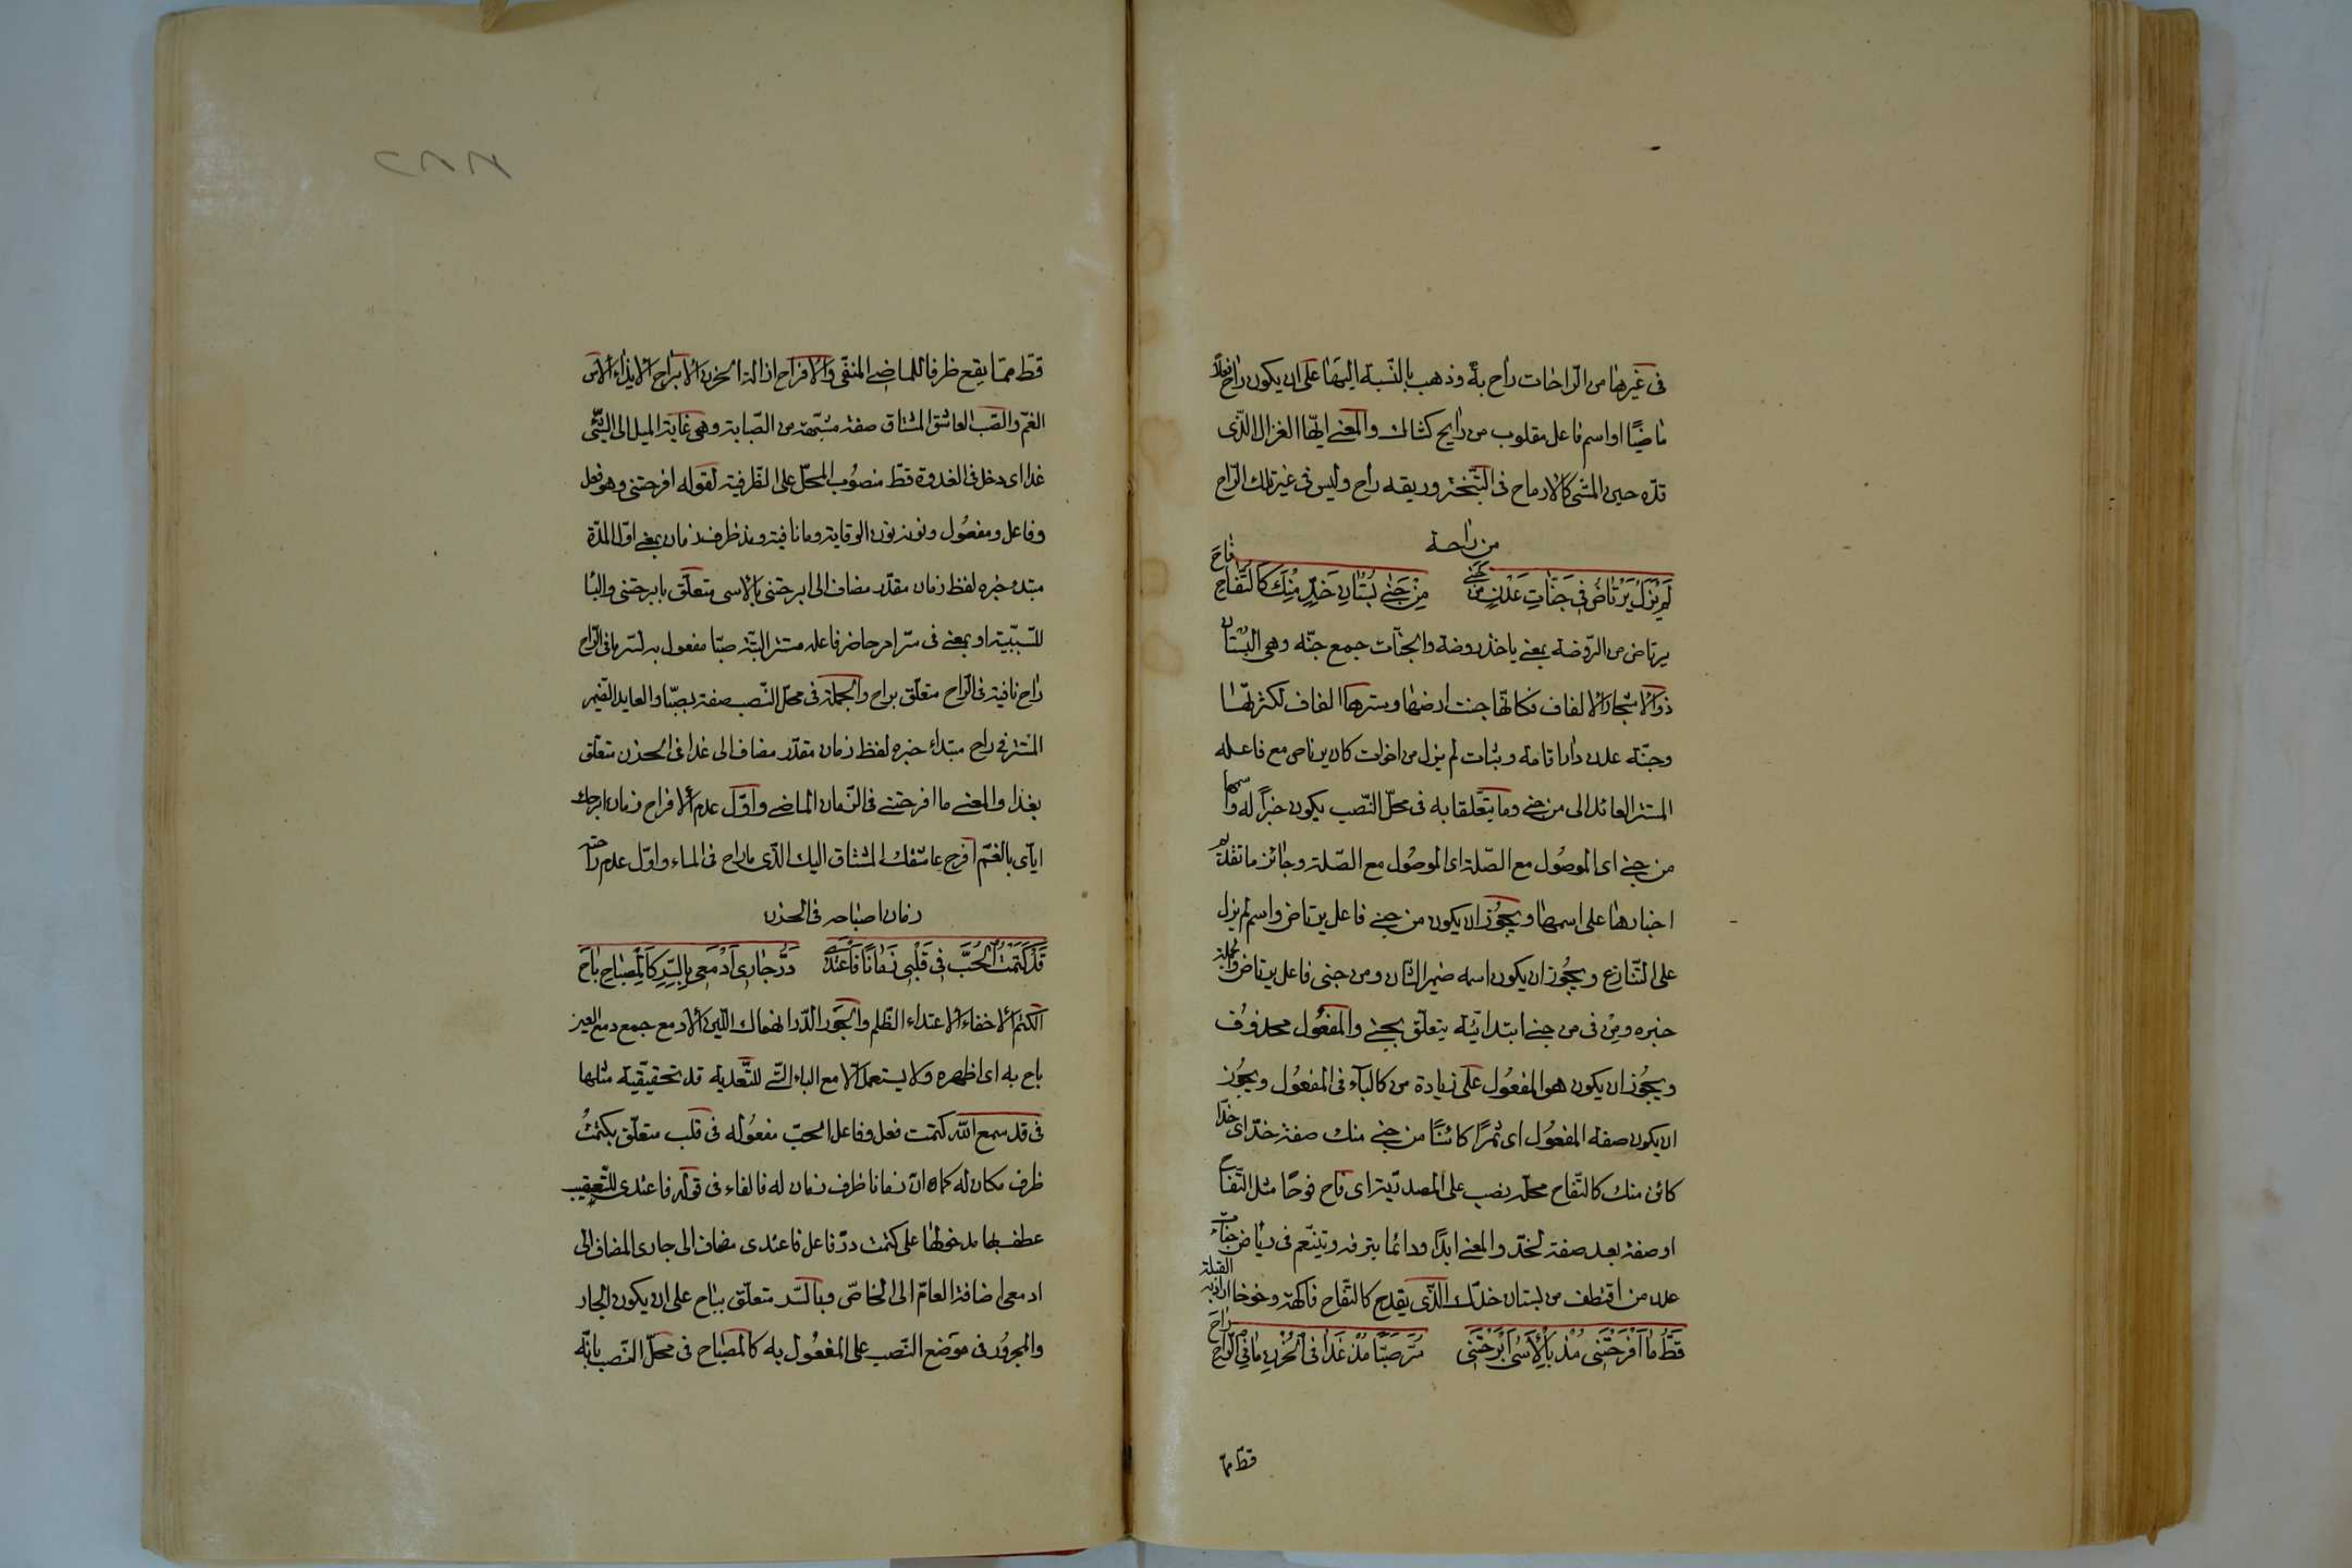 فى غيرها من الراحات راح به وذهب بالنسبة اليها على ان يكون راح فعلاً
ماضيًا او اسم فاعل مقلوب من رايح كشاك والمعنى ايها الغزال الذى
قده حين المشى كالارماح فى التبختر وريقه راح وليس فى غير تلك الراح
من راحة
لم يزل يرتاض فى جنات عدن من جنى من جنى بستان خد منك كالتفاح فاح
يرتاض من الروضة بمعنى ياخذ روضة والجنات جمع جنة وهى البستان
ذو الاشجار والالفاف فكانها جنت ارضها وسترها الفاف لكثرتها
وجنة عدن دار اقامة وثبات لم يزل من اخوات كان يرتاض مع فاعله
المستتر العائد الى من جنى وما يتعلقا به فى محل النصب يكون خبرًا له واسمها
من جنى اى الموصول مع الصلة اى الموصول مع الصلة وجائز ما تقدم
اخبارها على اسمها ويجوز ان يكون من جنى فاعل يرتاض واسم لم يزل
على التنازع ويجوز ان يكون اسمه ضمير الشان ومن جنى فاعل يرتاض والجملة
خبره ومن فى من جنى ابتدائية يتعلق بجنى والمفعول محذوف
ويجوز ان يكون هو المفعول على زيادة من كالباء فى المفعول ويجوز
ان يكون صفة المفعول اى ثمرًا كائنًا من جنى منك صفة خد اى خدا
كائن منك كالتفاح محله نصب على المصدرية اى فاح فوحًا مثل التفاح
او صفة بعد صفة لخد والمعنى ابدًا ودائما يترفه ويتنعم فى رياض جنات
عدن من اقتطف من بستان خدك الذى يقدح كالتفاح فاكهة وخوخا اراد به القبلة
قط ما افرحتنى مذ بالاسى ابرحتنى سر صبا مذ غدا فى الحزن ما فى الراح راح
قط مما
قط مما يقع ظرفا للماضى المنفى والافراح ازالة الحزن الابراح الايذاء الاسى
الغم والصب العاشق المشتاق صفة مشبهة من الصبابة وهى غاية الميل الى الشئ
غدا اى دخل فى الغدوة قط منصوب المحل على الظرفية لقوله افرحتنى وهو فعل
وفاعل ومفعول ونونه نون الوقاية وما نافية ومذ ظرف زمان بمعنى اول المدة
مبتدء خبره لفظ زمان مقدر مضاف الى ابرحتنى بالاسى متعلق بابرحتنى والباء
للسببية او بمعنى فى سر امر حاضر فاعله مستتر البتة صبا مفعول به لسر ما فى الراح
راح نافية فى الراح متعلق براح والجملة فى محل النصب صفة بصبا والعايد الضمير
المستتر فى راح مبتداء خبره لفظ زمان مقدر مضاف الى غدا فى الحزن متعلق
بغدا والمعنى ما افرحتنى فى الزمان الماضى واول عدم الافراح زمان ابرحك
اياى بالغم افرح عاشقك المشتاق اليك الذى ما راح فى المساء واول عدم راحته
زمان اصباحه فى الحزن
قد كتمت الحب فى قلبى زمانا فاعتدى در جارى ادمعى بالسر كالمصباح باح
الكتم الاخفاء الاعتداء الظلم والجور الدر انهماك اللبن الادمع جمع دمع العين
باح به اى اظهره ولا يستعمل الا مع الباء التى للتعدية قد تحقيقية مثلها
فى قد سمع الله كتمت فعل وفاعل الحب مفعوله فى قلب متعلق بكتمت
ظرف مكان له كما ان زمانا ظرف زمان له فالفاء فى قوله فاعتدى للتعقيب
عطف بها مدخولها على كتمت در فاعل فاعتدى مضاف الى جارى المضاف الى
ادمعى اضافة العام الى الخاص وبالسر متعلق بباح على ان يكون الجار
والمجرور فى موضع النصب على المفعول به كالمصباح فى محل النصب بانه